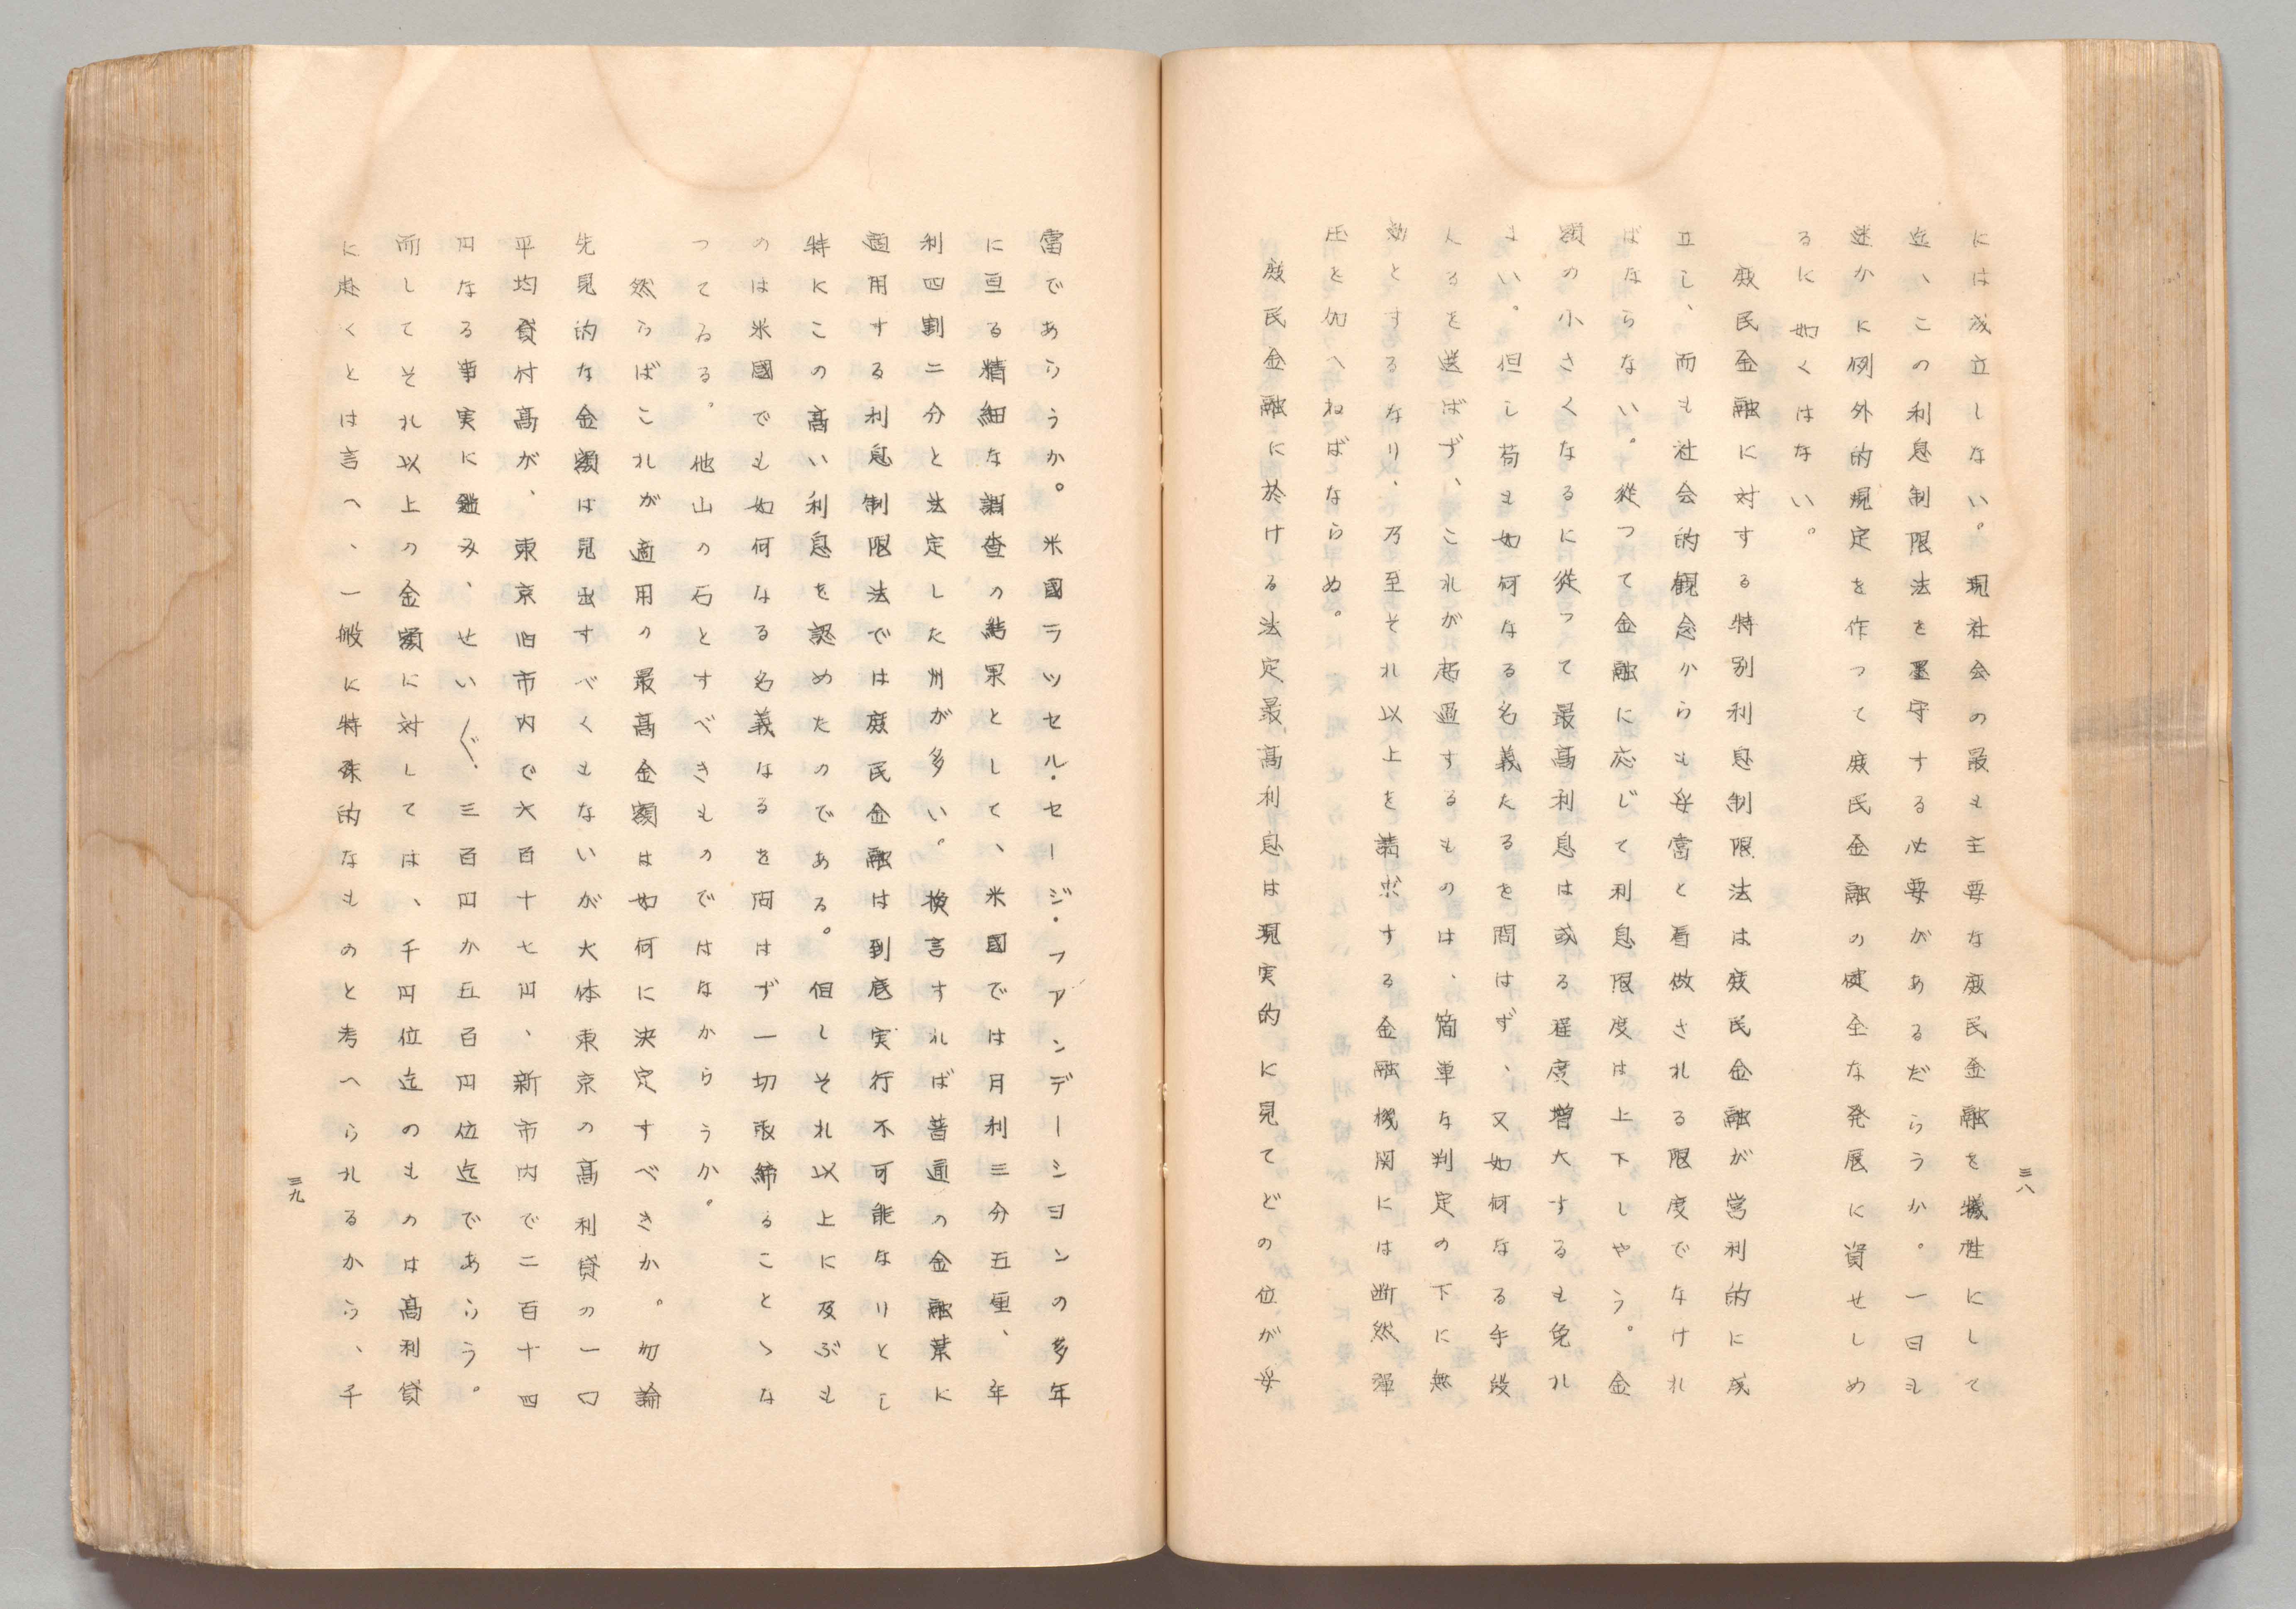 三八
には成立しない。現社会の最も主要な庶民金融を犠牲にして
迄、この利息制限法を墨守する必要があるだらうか。一日も
速かに例外的規定を作つて庶民金融の健全な発展に資せしめ
るに如くはない。
庶民金融に対する特別利息制限法は庶民金融が営利的に成
立し、而も社会的観念からも妥當と看做される限度でなけれ
ばならない。從つて金融に応じて利息限度は上下しやう。金
額の小さくなるに從つて最髙利息は或る程度増大するも免れ
まい。但し苟も如何なる名義たるを問はず、又如何なる手段
たるを選ばず、これが超過するものは、簡単な判定の下に無
効とするなり、乃至それ以上を請求する金融機関には断然彈
圧を加へねばならぬ。
庶民金融に於ける法定最髙利息は現実的に見てどの位が妥
當であらうか。米國ラツセル・セージ・フアンデーシヨンの多年
に亘る精細な調査の結果として、米國では月利三分五厘、年
利四割二分と法定した州が多い。換言すれば普通の金融業に
適用する利息制限法では庶民金融は到底実行不可能なりとし
特にこの髙い利息を認めたのである。但しそれ以上に及ぶも
のは米國でも如何なる名義なるを問はず一切取締ることゝな
つてゐる。他山の石とすべきものではなからうか。
然らばこれが適用の最髙金額は如何に決定すべきか。勿論
先見的な金額は見出すべくもないが大体東京の髙利貸の一口
平均貸付髙が、東京旧市内で六百十七円、新市内で二百十四
円なる事実に鑑み、せい〴〵三百円か五百円位迄であらう。
而してそれ以上の金額に対しては、千円位迄のものは髙利貸
に赴くとは言へ、一般に特殊的なものと考へられるから、千
三九